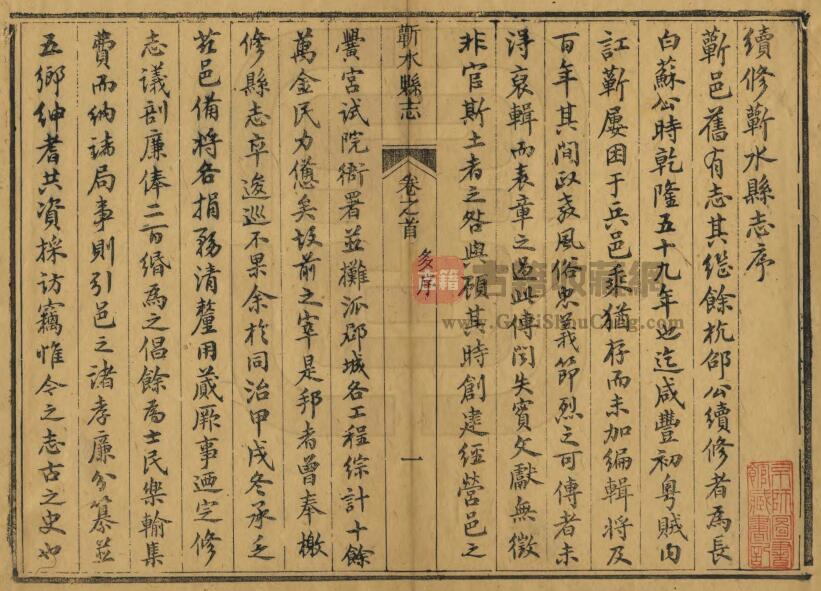 續修蘄水縣志序
蘄邑舊有志其繼餘杭邵公續修者為長
白蘇公時乾隆五十九年也迄咸豐初粵賊内
訌蘄屢困于兵邑乘猶存而未加編輯將及
百年其間政教風俗忠義節烈之可傳者未
得裒輯而表章之過此傳聞失實文獻無徵
非官斯土者之咎與顧其時創建經營邑之
蘄水縣志
卷之首
序
一
黌宮試院衙署並攤派郡城各工程綜計十餘
萬金民力憊矣故前之宰是邦者曾奉檄
修縣志卒逡巡不果余於同治甲戌冬承乏
茲邑備將各捐務清釐用蕆厥事迺定修
志議剖廉俸二百緡為之倡餘為士民樂輸集
費而納諸局事則引邑之諸孝廉分纂並
五鄉紳耆共資採訪竊惟今之志古之史也
古籍
古籍收藏網
www.GujiShouCang.com